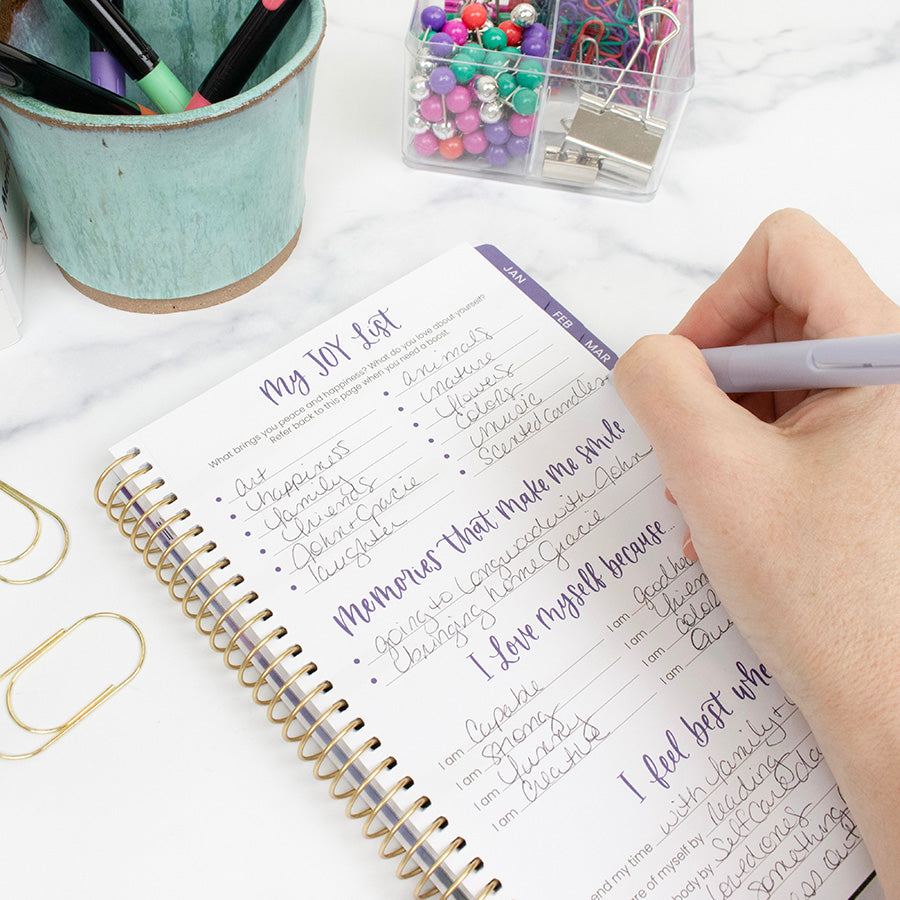 JAN
FEB
MAR
My JOY List
What brings you peace and happiness? What do you love about yourself?
Refer back to this page when you need a boost.
art
happiness
family
friends
John + Gracie
laughter
animals
nature
flowers
colors
music
Scented Candles
Memories that make me smile
going to Longwood with John
bringing home Gracie
I love myself because...
I am Capable
I am Strong
I am funny
I am Creative
I am
I am
I am
I am
I feel best whe
end my time with family +
re of myself by reading
body by Selfcare
loved ones
something